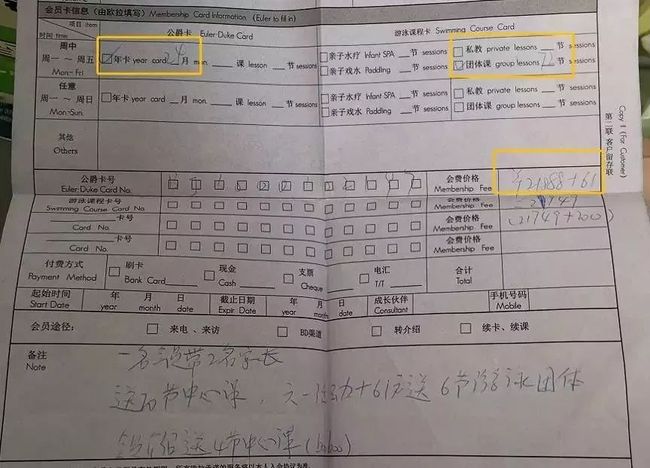 会员卡信息（由欧拉填写）Membership Card Information (Euler to fill in)
项目 item
时间 time
公爵卡 Euler Duke Card
游泳课程卡 Swimming Course Card
周中
周一 ～ 周五
Mon-Fri
年卡 year card 24 月 mon. 课 lesson 节 sessions
亲子水疗 Infant SPA 节 sessions
亲子戏水 Paddling 节 sessions
私教 private lessons 节 sessions
团体课 group lessons 节 sessions
任意
周一 ～ 周日
Mon-Sun.
年卡 year card 月 mon. 课 lesson 节 sessions
亲子水疗 Infant SPA 节 sessions
亲子戏水 Paddling 节 sessions
私教 private lessons 节 sessions
团体课 group lessons 节 sessions
其他
Others
公爵卡号
Euler Duke Card No.
会费价格
Membership Fee
21688+61
游泳课程卡号
Swimming Course Card No.
会费价格
Membership Fee
21749
卡号
Card No.
会费价格
Membership Fee
(21749+200)
卡号
Card No.
会费价格
Membership Fee
付费方式
Payment Method
刷卡
Bank Card
现金
Cash
支票
Cheque
电汇
T/T
合计
Total
起始时间
Start Date
年 月 日
year month date
截止日期
Expir Date
年 月 日
year month date
成长伙伴
Consultant
手机号码
Mobile
会员途径：
来电、来访
BD渠道
转介绍
续卡、续课
备注
Note
一名宝宝带2名家长
送10节中心课，六一活动+61元送6节游泳团体
送4节中心课
Copy 1 (For Customer)
第二联 客户留存联